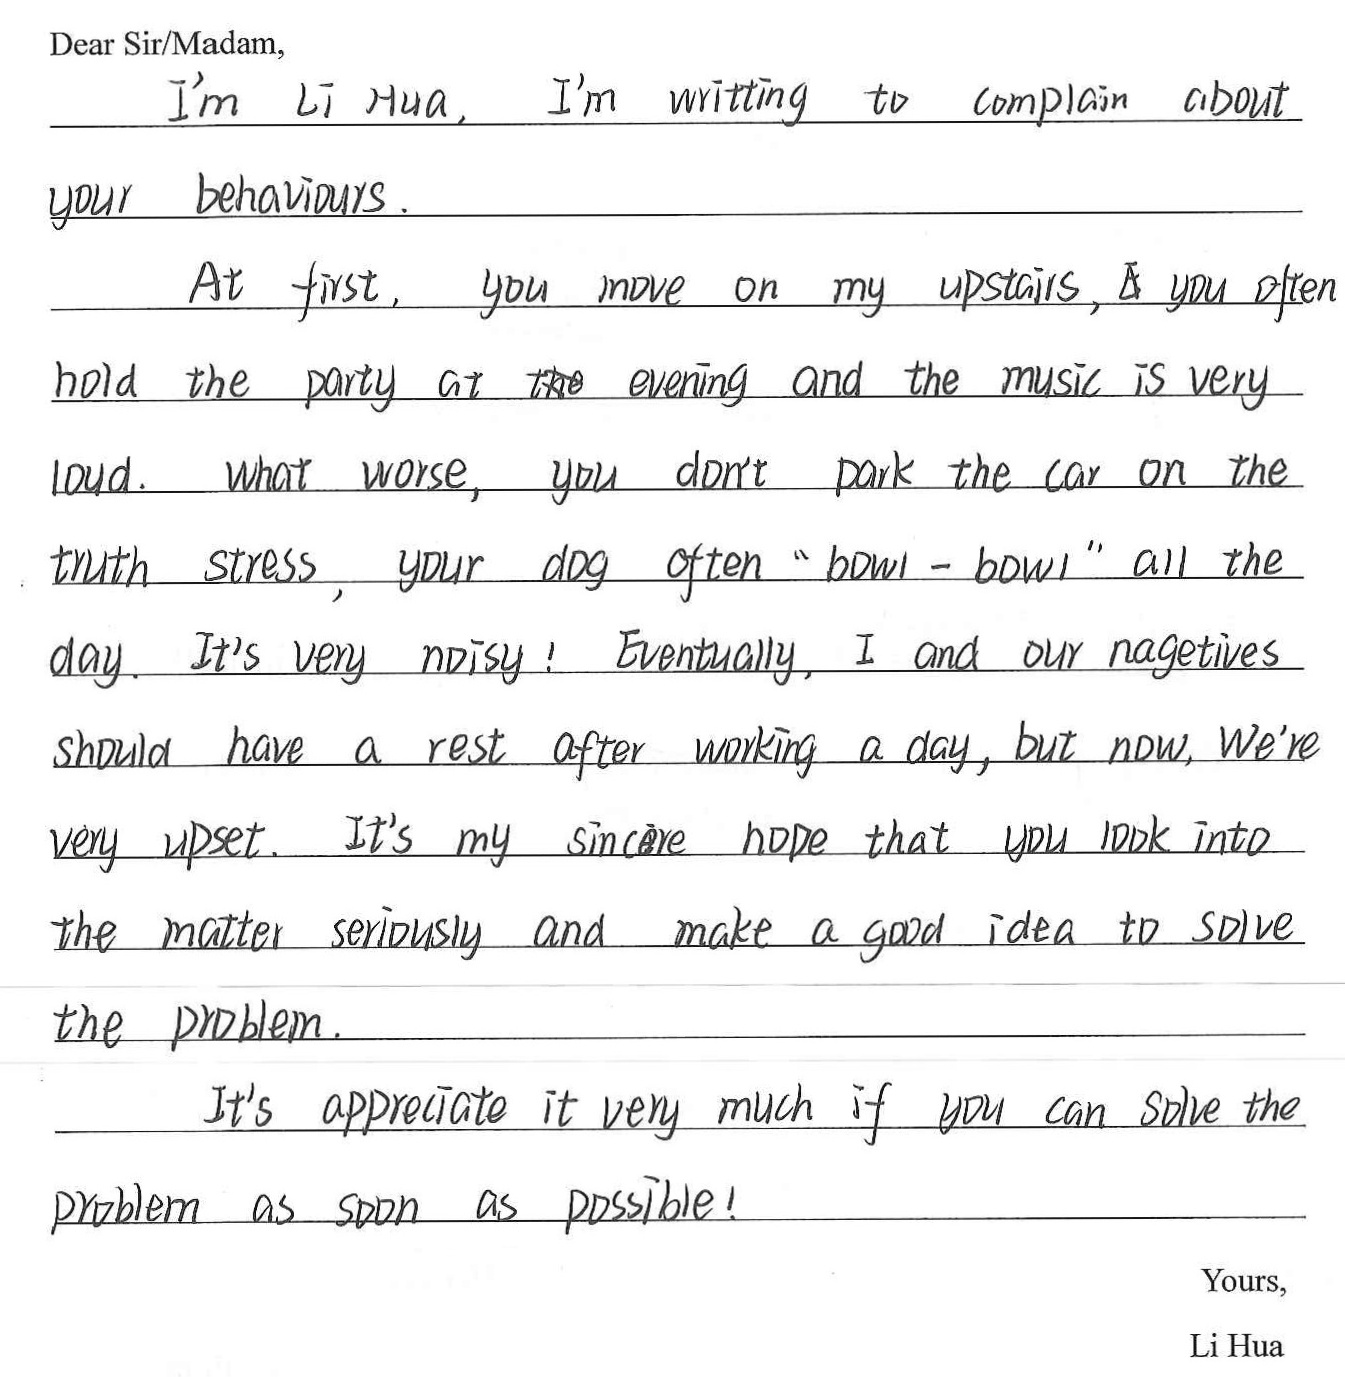 Dear Sir/Madam,
I'm Li Hua, I'm writting to complain about
your behaviours.
At first, you move on my upstairs, you often
hold the party at the evening and the music is very
loud. What worse, you don't park the car on the
truth stress, your dog often "bowl - bowl" all the
day. It's very noisy! Eventually, I and our nagetives
should have a rest after working a day, but now, We're
very upset. It's my sincere hope that you look into
the matter seriously and make a good idea to solve
the problem.
It's appreciate it very much if you can solve the
problem as soon as possible!
Yours,
Li Hua